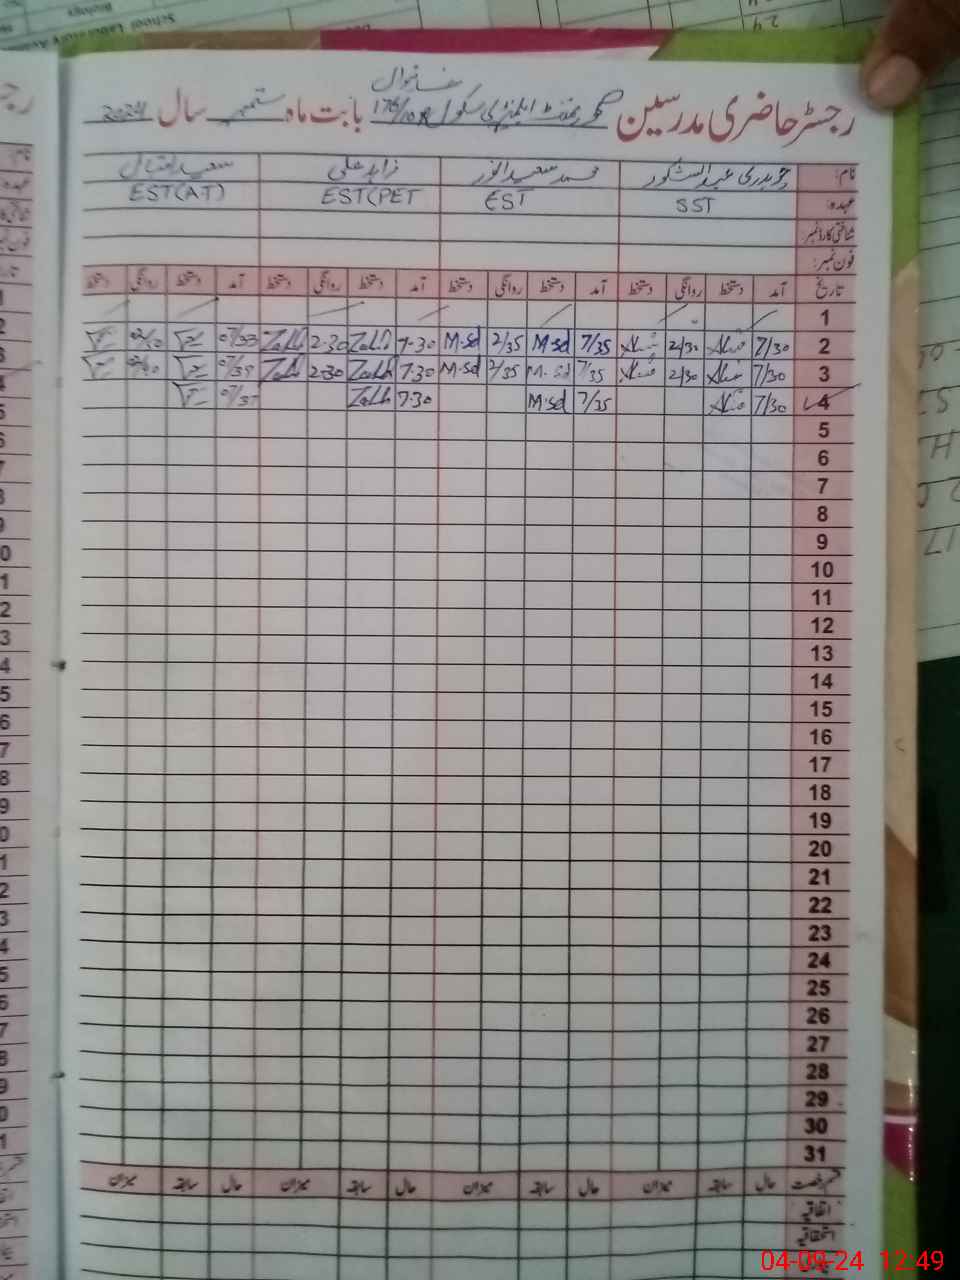 خانیوال
رجسٹر حاضری مدرسین گورنمنٹ ایلیمنٹری سکول 176/10R بابت ماہ ستمبر سال 2024
نام: چوہدری عبدالشکور محمد سعید انور زاہد علی سعید اقبال
عہدہ: SST EST EST(PET EST(AT)
شناختی کارڈ نمبر:
فون نمبر:
تاریخ آمد دستخط روانگی دستخط آمد دستخط روانگی دستخط آمد دستخط روانگی دستخط آمد دستخط روانگی دستخط
1
2 7/30 2/30 7/35 M.sd 2/35 M.sd 7-30 Zahid 2-30 Zahid
3 7/30 2/30 7/35 M.sd 2/35 M.sd 7.30 Zahid 2-30 Zahid
4 7/30 7/35 M.sd 7.30 Zahid
5
6
7
8
9
10
11
12
13
14
15
16
17
18
19
20
21
22
23
24
25
26
27
28
29
30
31
قسم رخصت حال سابقہ میزان حال سابقہ میزان حال سابقہ میزان حال سابقہ میزان
اتفاقیہ
استحقاقیہ
04-09-24 12:49